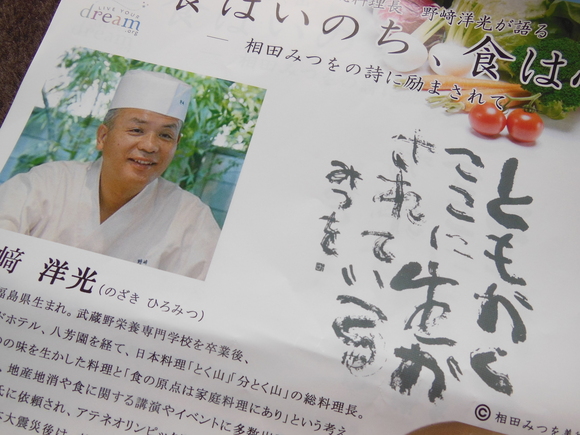 LIVE YOUR
dream
.org
料理長 野﨑洋光が語る
食はいのち、食は
― 相田みつをの詩に励まされて
ともかく
ここに生が
されている
みつを
﨑 洋光(のざき ひろみつ)
福島県生まれ。武蔵野栄養専門学校を卒業後、
ドホテル、八芳園を経て、日本料理「とく山」「分とく山」の総料理長。
の味を生かした料理と「食の原点は家庭料理にあり」という考え
、地産地消や食に関する講演やイベントに多数出
氏に依頼され、アテネオリンピック
大震災後は、
© 相田みつを美